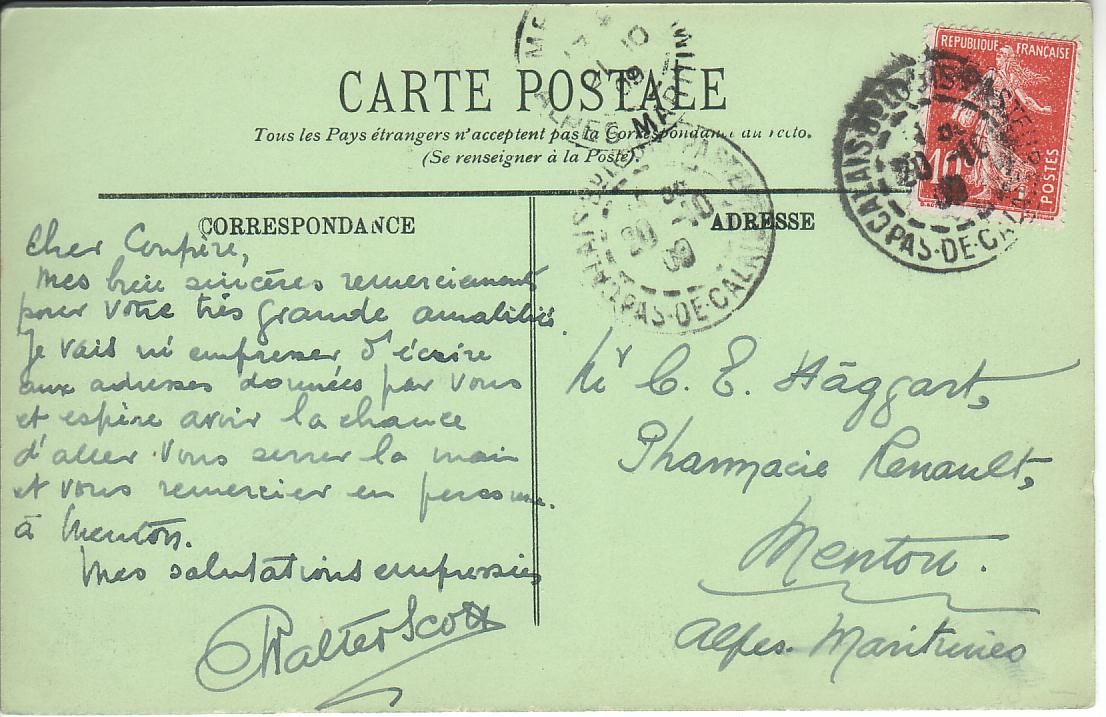 CARTE POSTALE
Tous les Pays étrangers n'acceptent pas la Correspondance au recto.
(Se renseigner à la Poste).
CORRESPONDANCE
ADRESSE
Cher Confrère,
Mes bien sincères remerciements
pour Votre très grande amabilité.
Je vais m'empresser d'écrire
aux adresses données par Vous
et espère avoir la chance
d'aller Vous serrer la main
et vous remercier en personne.
à Menton.
Mes salutations empressées
Walter Scott
Mr C. E. Häggart,
Pharmacie Renault,
Menton.
Alpes-Maritimes
REPUBLIQUE FRANÇAISE
10
POSTES
ALPES MARITIM
21 10
09
PAS-DE-CALAIS
20 -10
09
CALAIS
PAS-DE-CALAIS
20 -10
09